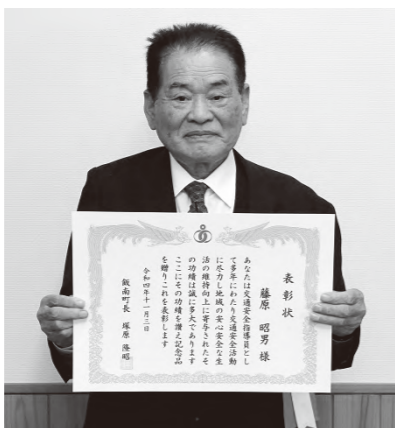 表彰状
藤原 昭男 様
あなたは交通安全指導員とし
て多年にわたり交通安全活動
に尽力し地域の安心安全な生
活の維持向上に寄与されたそ
の功績は誠に多大であります
ここにその功績を讃え記念品
を贈りこれを表彰します
令和四年十一月三日
飯南町長 塚原 隆昭